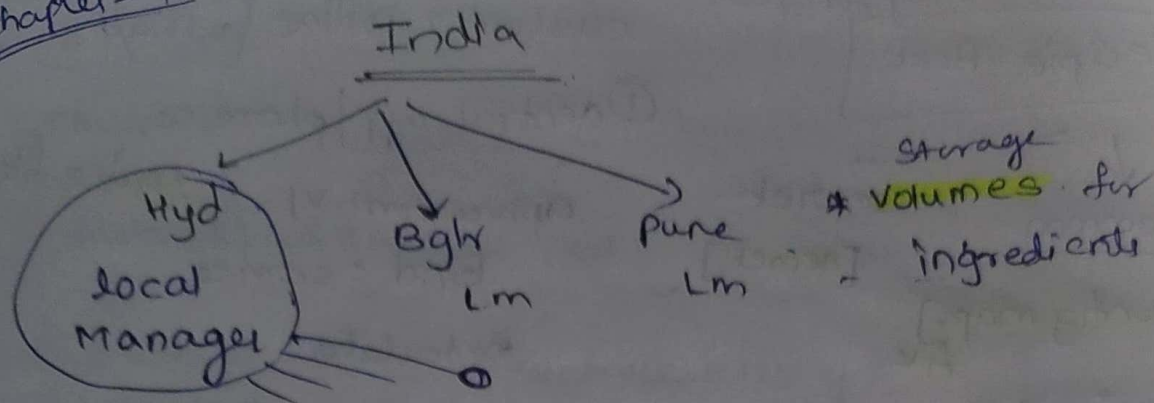 India
Hyd
local
Manager
Bglr
Lm
Pune
Lm
Storage
* Volumes for
ingredients